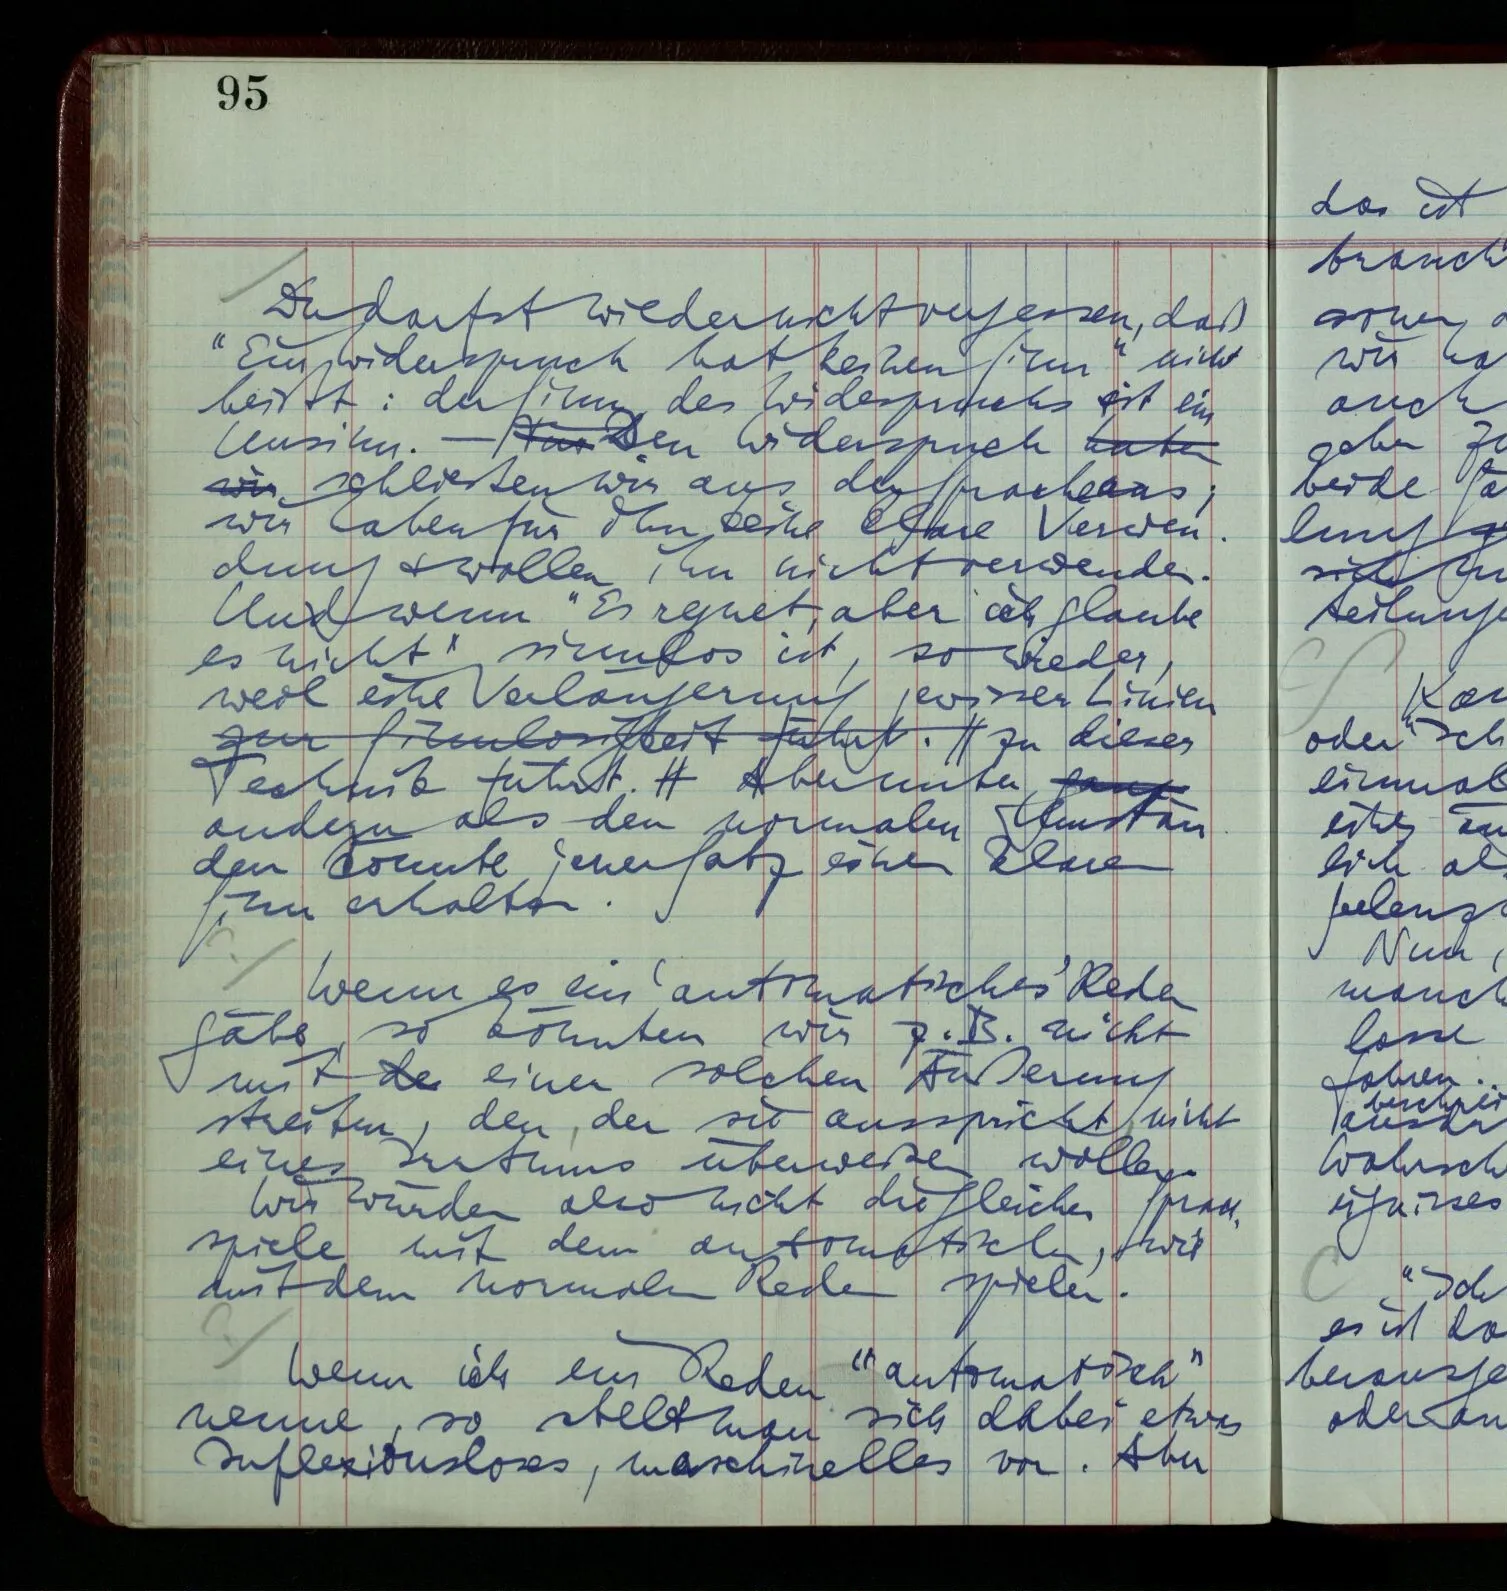 95
Du darfst wieder nicht vergessen, daß
"Ein Widerspruch hat keinen Sinn" nicht
heißt: der Sinn des Widerspruchs ist ein
Unsinn. — Den Widerspruch haben
wir schließen wir aus der Sprache aus;
wir haben für ihn keine klare Verwen-
dung & wollen ihn nicht verwenden.
Und wenn "Es regnet, aber ich glaube
es nicht" sinnlos ist, so wieder,
weil eine Verlängerung gewisser Linien
zur Sinnlosigkeit führt. // zu dieser
Technik führt. // Aber unter
andern als den normalen Umstän
den könnte jener Satz einen klaren
Sinn erhalten.
Wenn es ein 'automatisches' Reden
gäbe, so könnten wir z.B. nicht
mit der einer solchen Äußerung
streiten, den, der sie ausspricht, nicht
eines Irrtums überweisen wollen.
Wir würden also nicht die gleichen Sprach-
spiele mit dem automatischen, wie
mit dem normalen Reden spielen.
Wenn ich ein Reden "automatisch"
nenne, so stellt man sich dabei etwas
Inflexionsloses, maschinelles vor. Aber
das ist
wir
auch
geben
beide
Nun,
lasse
"Ich
es ist